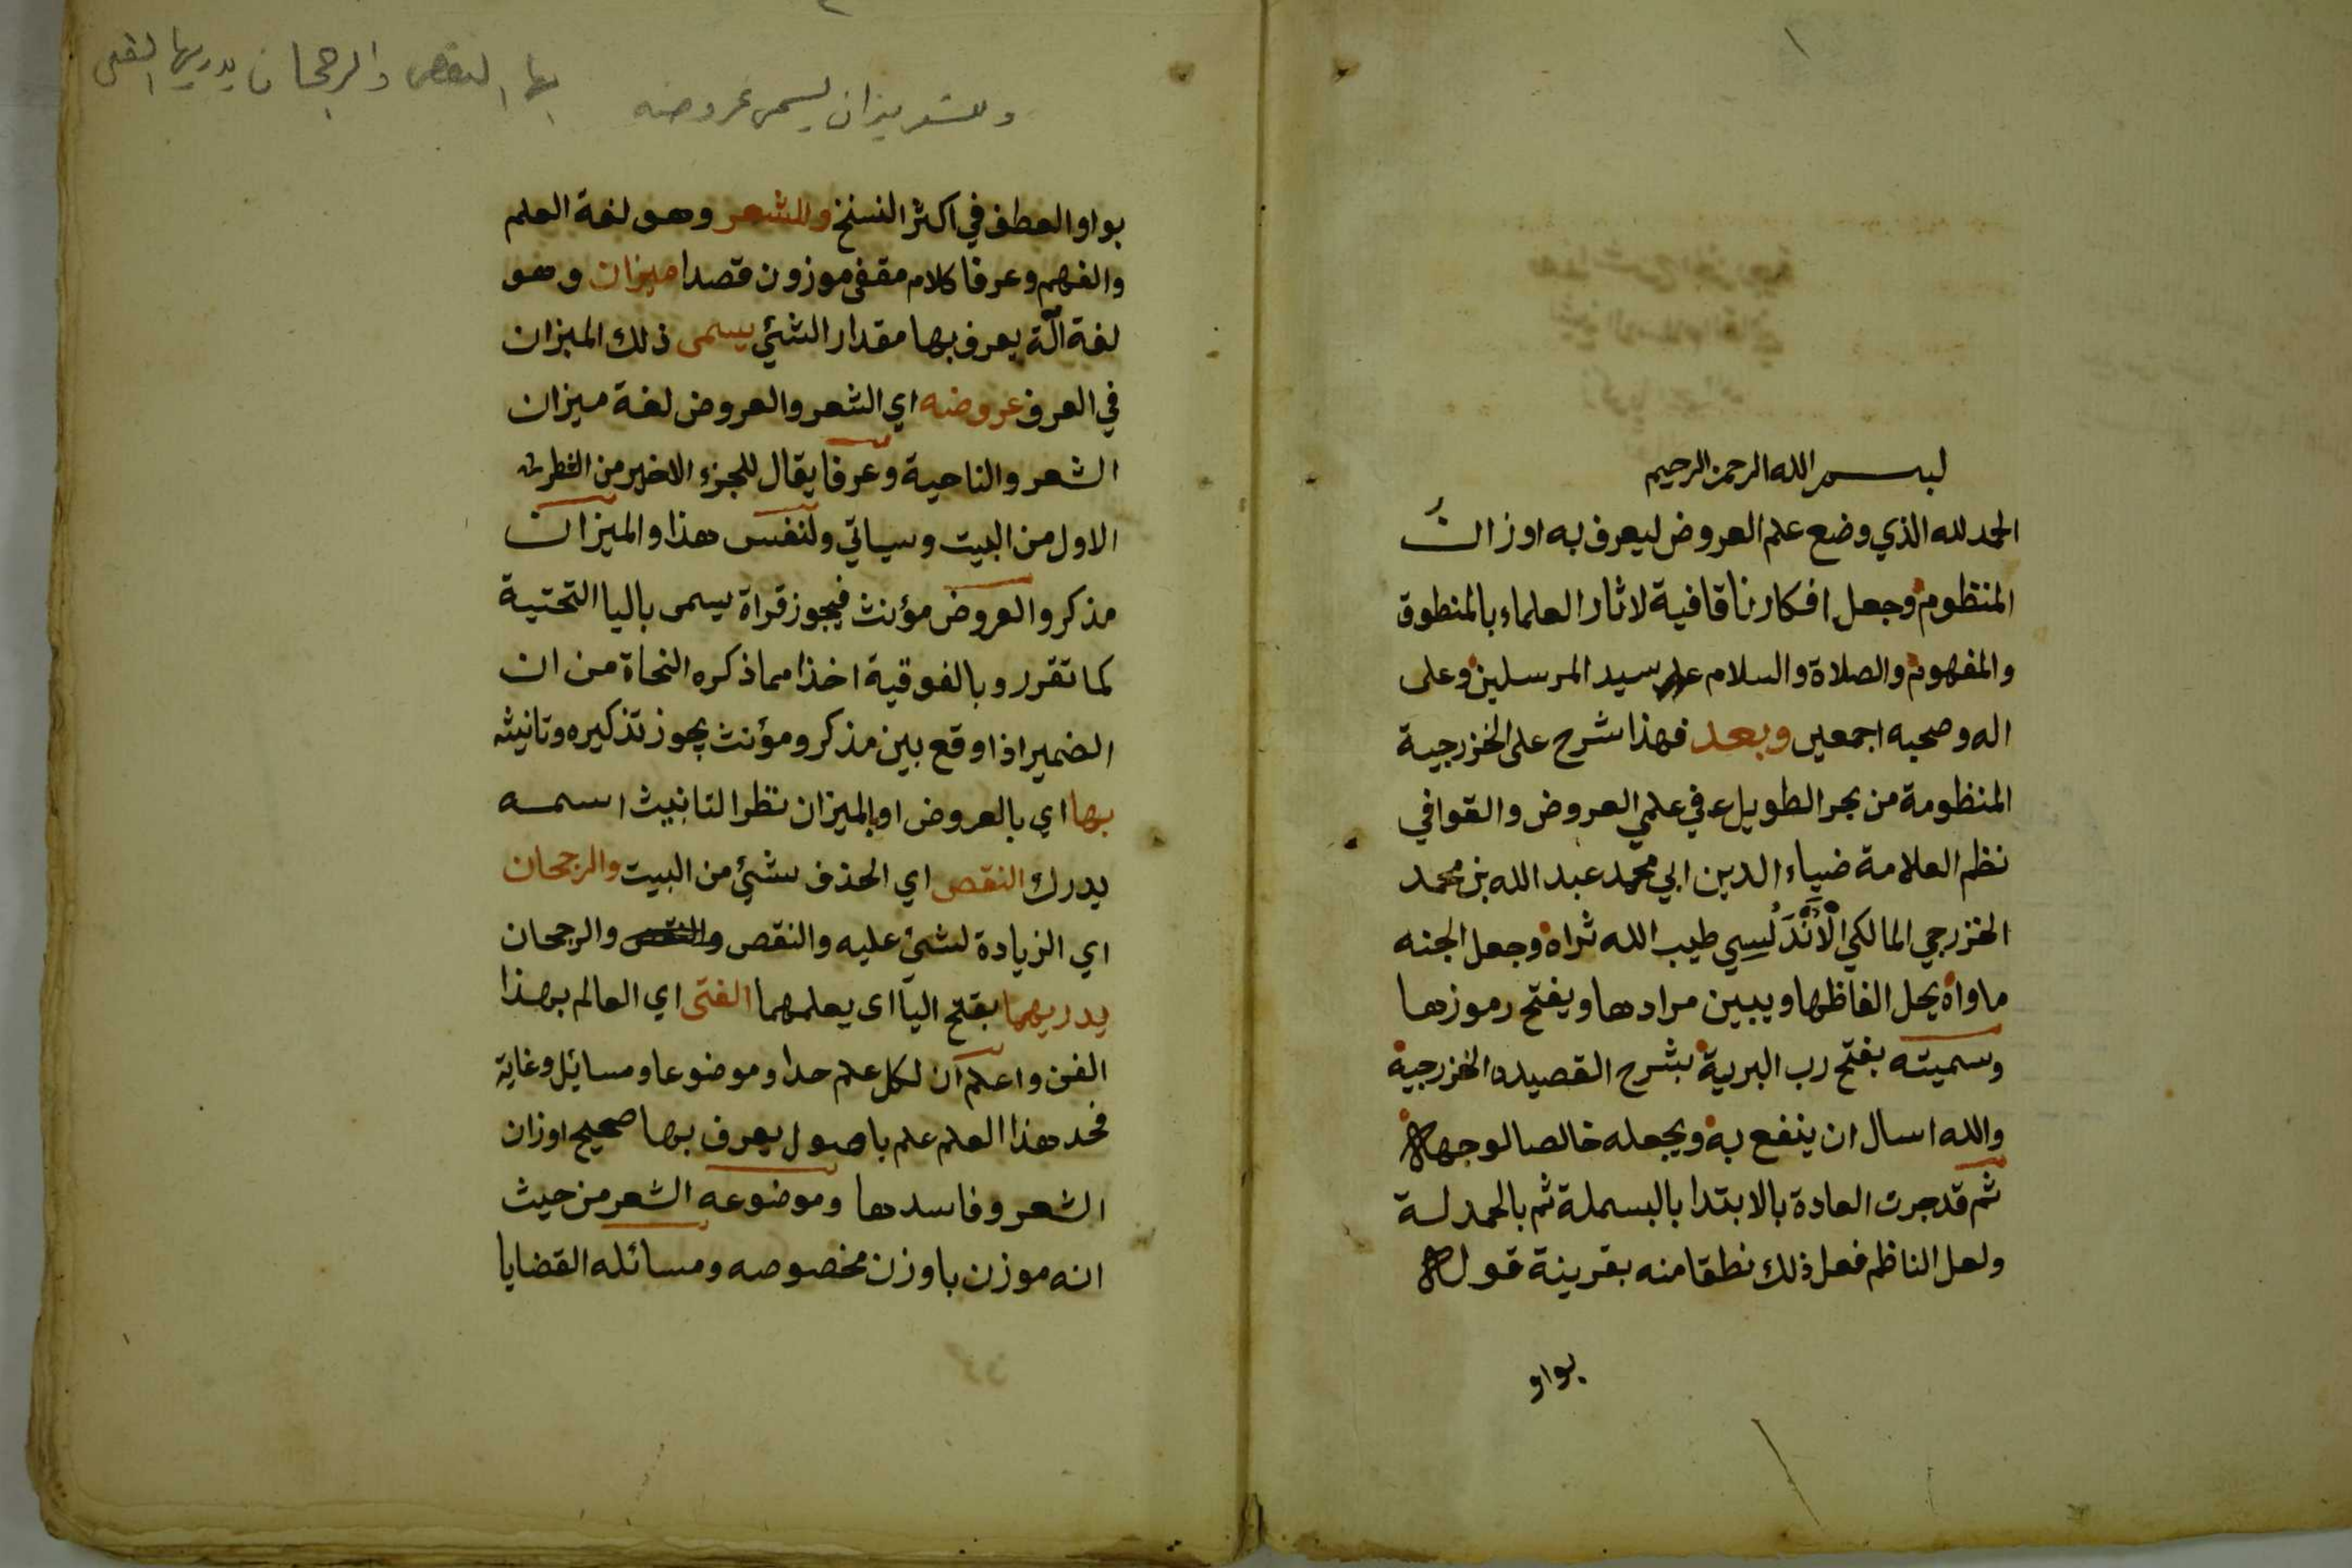 ١
بسم الله الرحمن الرحيم
الحمد لله الذي وضع علم العروض ليعرف به اوزان
المنظوم وجعل افكارنا قافية لاثار العلماء بالمنطوق
والمفهوم والصلاة والسلام على سيد المرسلين وعلى
اله وصحبه اجمعين وبعد فهذا شرح على الخزرجية
المنظومة من بحر الطويل في علمي العروض والقوافي
نظم العلامة ضياء الدين ابي محمد عبد الله بن محمد
الخزرجي المالكي الْأَنْدَلُسِي طيب الله ثراه وجعل الجنه
ماواه يحل الفاظها ويبين مرادها ويفتح رموزها
وسميته بفتح رب البرية بشرح القصيده الخزرجية
والله اسال ان ينفع به ويجعله خالصا لوجهه
ثم قد جرت العادة بالابتدا بالبسملة ثم بالحمدلة
ولعل الناظم فعل ذلك نطقا منه بقرينة قوله
بواو
وللشعر ميزان يسمى عروضه
بها النقص والرجحان يدريهما الفتى
بواو العطف في اكثر النسخ وللشعر وهو لغة العلم
والفهم وعرفا كلام مقفى موزون قصدا ميزان وهو
لغة آلة يعرف بها مقدار الشئي يسمى ذلك الميزان
في العرف عروضه اي الشعر والعروض لغة ميزان
الشعر والناحية وعرفا يقال للجزء الاخير من الشطر
الاول من البيت وسياتي ولنفس هذا والميزان
مذكر والعروض مؤنث فيجوز قراة يسمى باليا التحتية
كما تقرر وبالفوقية اخذا مما ذكره النحاة من ان
الضمير اذا وقع بين مذكر ومؤنث يجوز تذكيره وتانيثه
بها اي بالعروض او بالميزان نظرا لتانيث اسمه
يدرك النقص اي الحذف لشئي من البيت والرجحان
اي الزيادة لشئ عليه والنقص والنقص والرجحان
يدريهما بفتح اليآ اى يعلمهما الفتى اي العالم بهذا
الفن واعلم ان لكل علم حدا وموضوعا ومسايل وغاية
فحد هذا العلم علم باصول يعرف بها صحيح اوزان
الشعر وفاسدها وموضوعه الشعر من حيث
انه موزن باوزن مخصوصه ومسائله القضايا